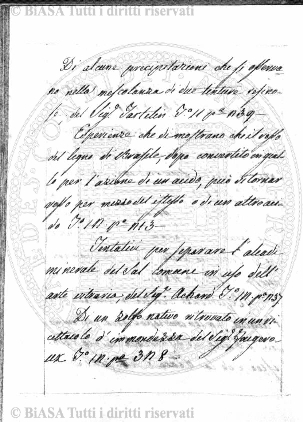 © BiASA Tutti i diritti riservati
Di alcune precipitazioni che si osserva
no nella mescolanza di due tenture resino
se del Sig.r Tartelin T.o II p.e n39
Esperienze che dimostrano che il rosso
del legno di Brasile, dopo convertito in gial
lo per l'azione di un acido, può ritornar
rosso per mezzo del stesso o di un altro aci
do T.o III p.e n13
Tentativi per separare l'alcali
minerale del Sal comune in uso dell'
arte vetraria del Sig.r Achard T.o III p.e n37
Di un zolfo nativo ritrovato in un ri
cettacolo d'immondizza del Sig.r
T.o III p.e 3n8
© BiASA Tutti i diritti riservati